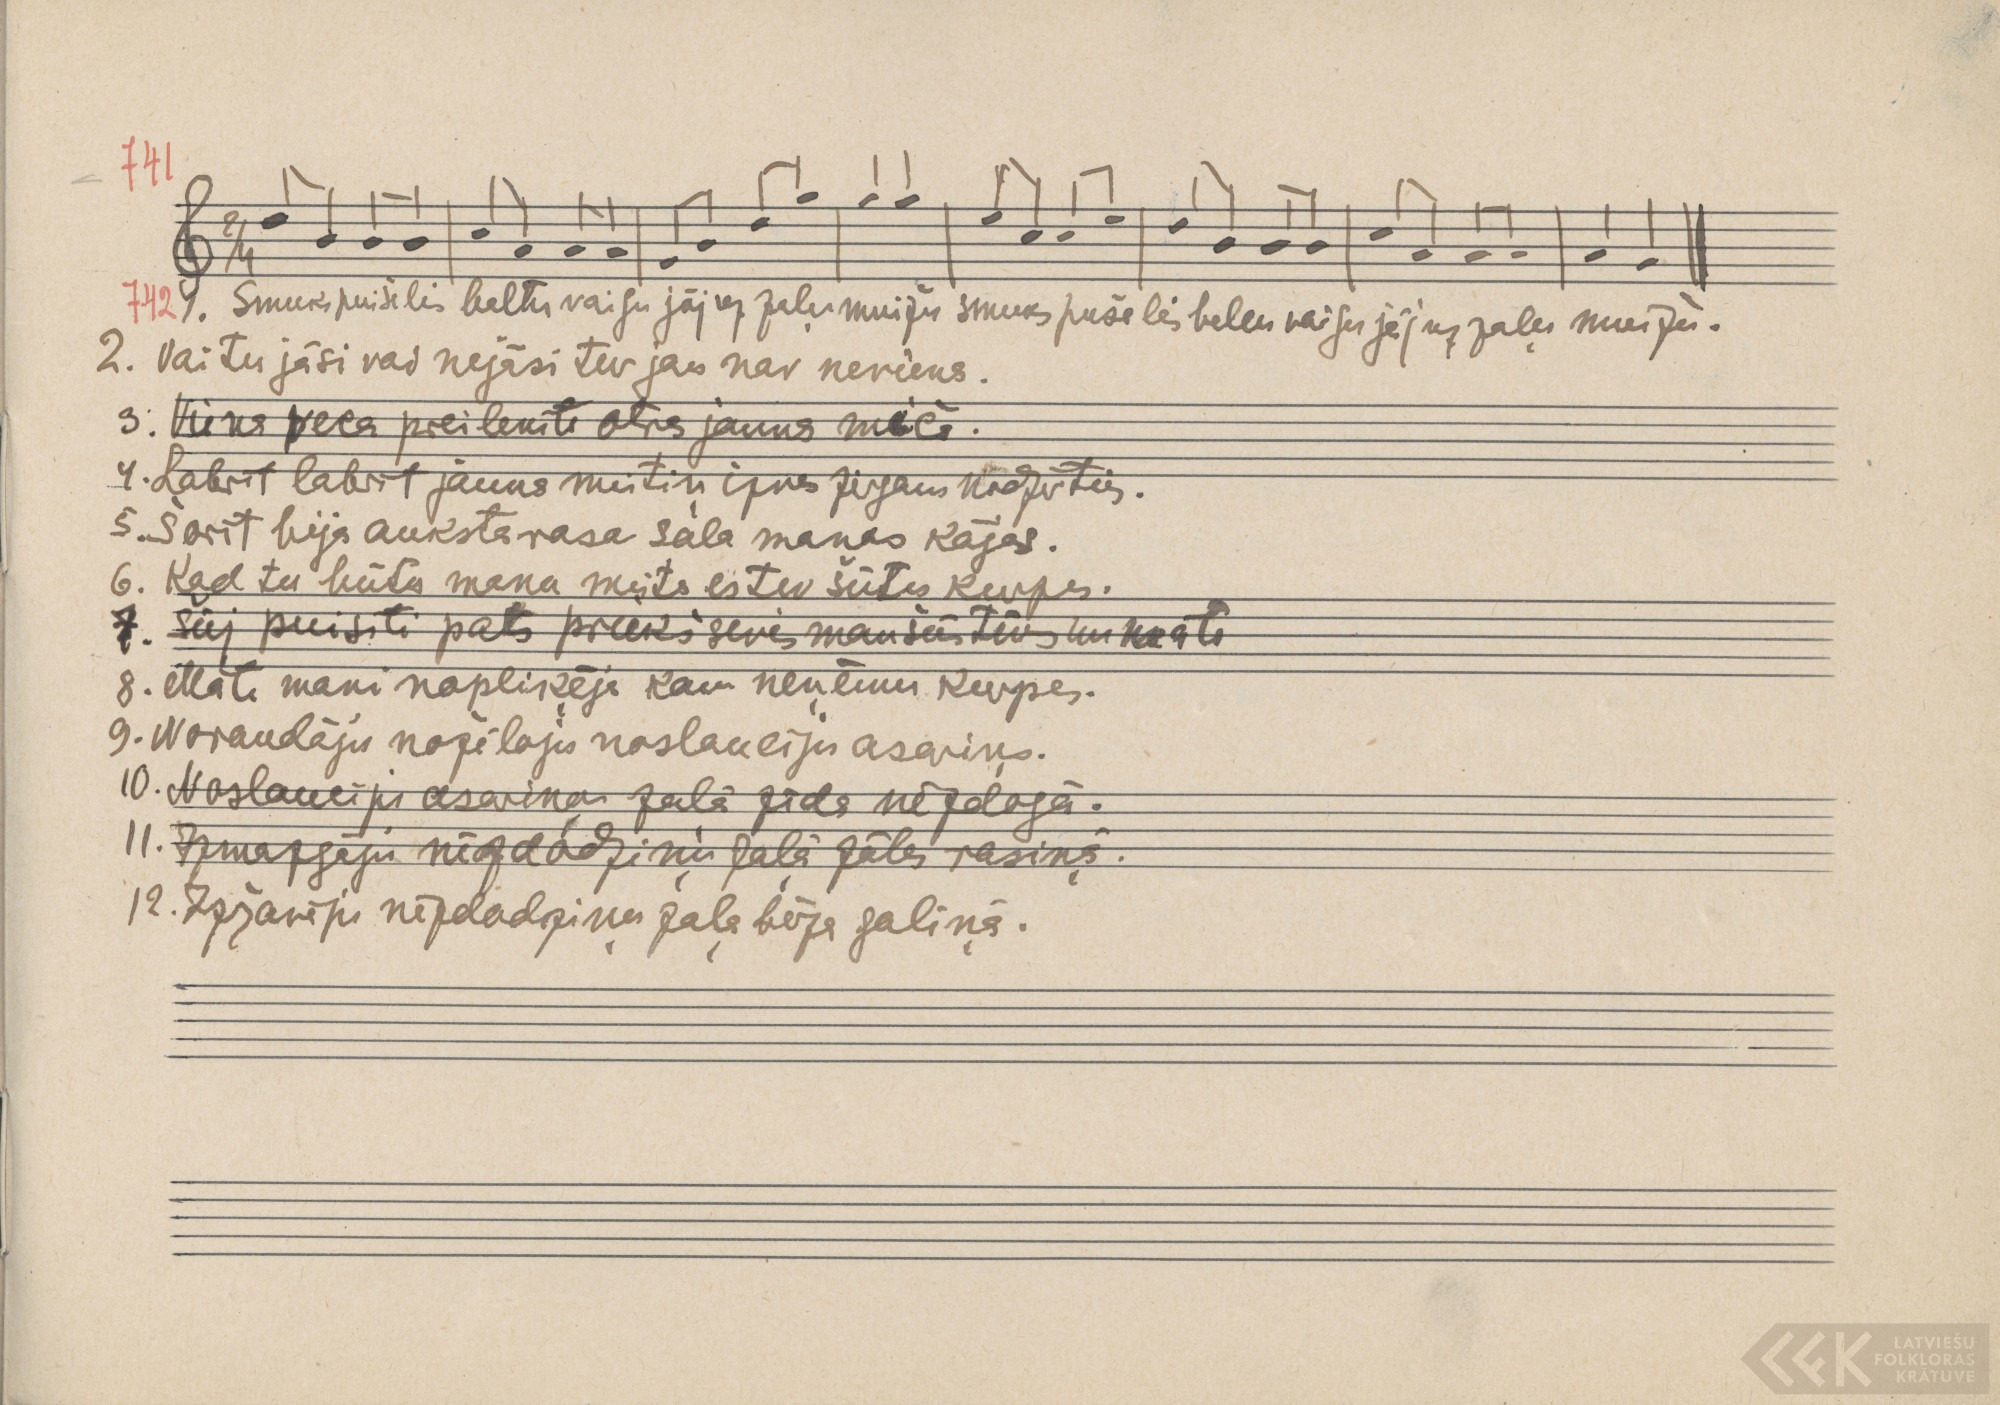 741
2/4
742 1. Smuks puišelis baltu vaigu jāj uz zaļu muižu smuks pušelis baltu vaigu jāj uz zaļu muižu.
2. Vai tu jāsi vai nejāsi tev jau nav neviena.
3. Viena veca preilenīte otra jauna meičа.
4. Labrīt labrīt jauna meitiņ zirgam nodzīties.
5. Šorīt bija auksta rasa sala manas kājas.
6. Kad tu būtu mana meita es tev šūtu kurpes.
7. Šūj puisīti pats priekš sevis man šūs tēvs un māte
8. Māte mani nopliķēja kam neņēmu kurpes.
9. Noraudāju nožēloju noslaucīju asariņas.
10. Noslaucīju asariņas zaļā zīda nēzdogā.
11. Izmazgāju nēzdodziņu zaļā zāles rasiņā.
12. Izžāvēju nēzdodziņu zaļa bērza galiņā.
LATVIEŠU
FOLKLORAS
KRĀTUVE